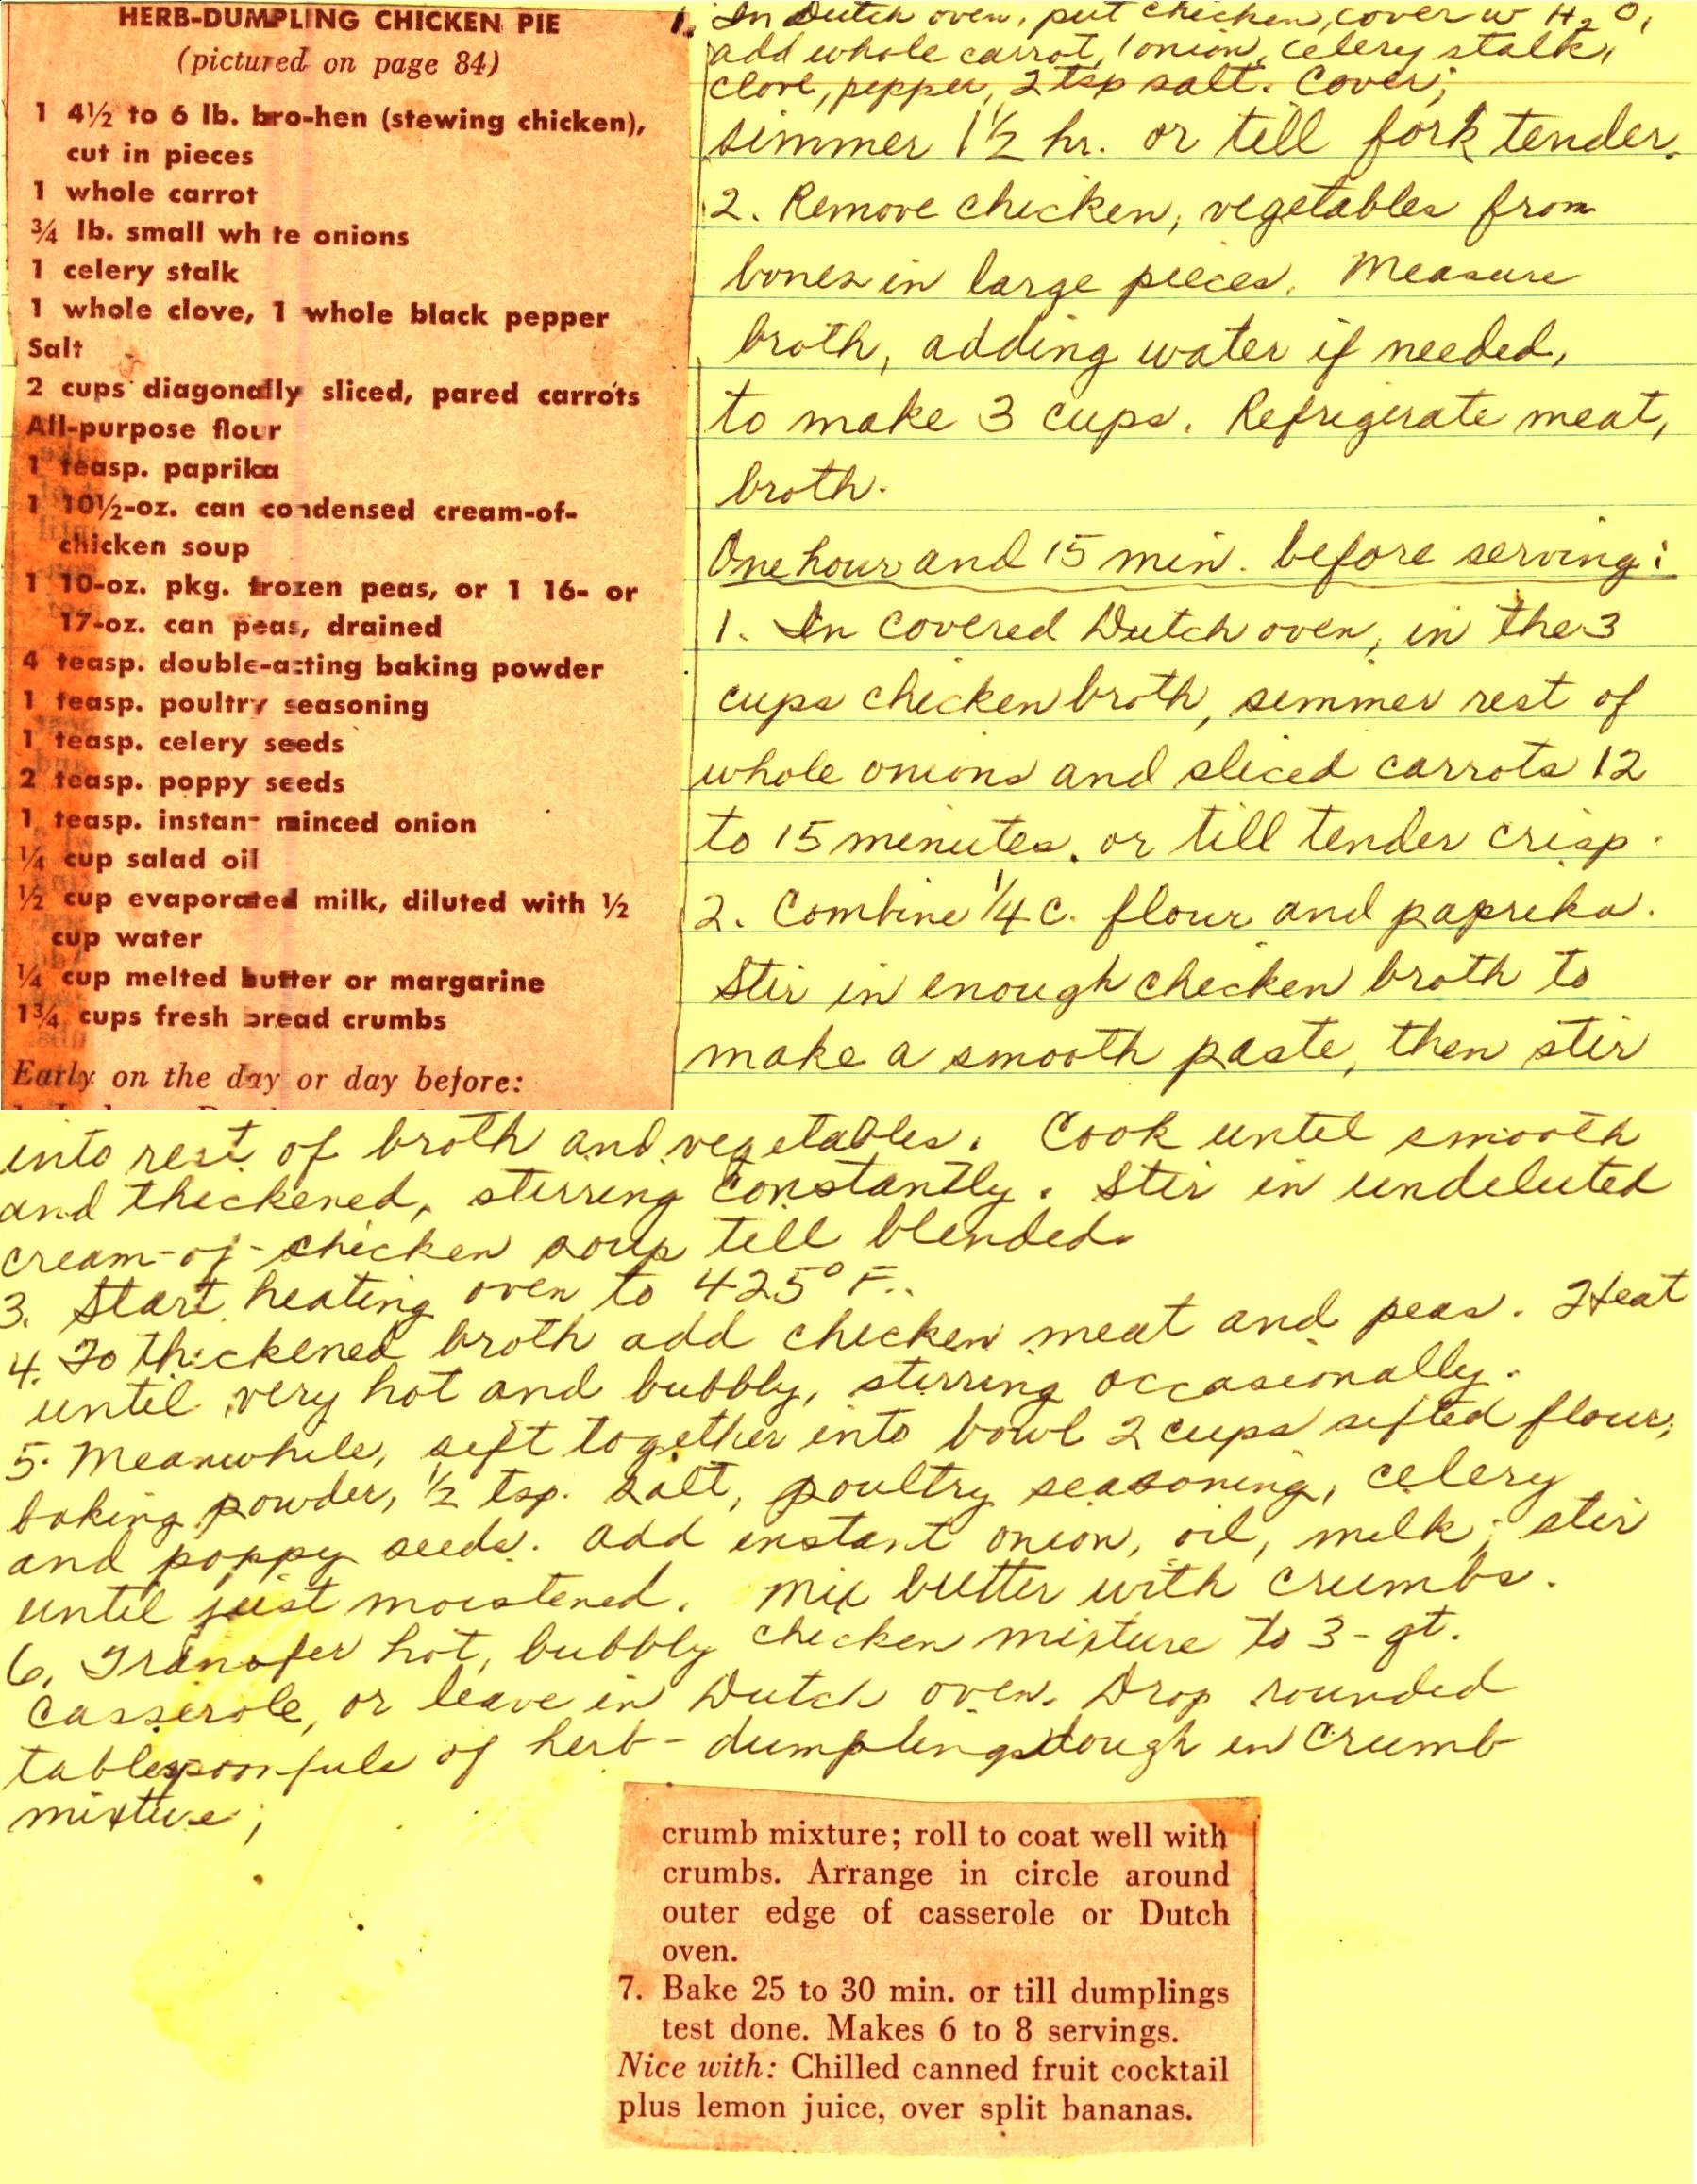 HERB-DUMPLING CHICKEN PIE
(pictured on page 84)
1 4½ to 6 lb. bro-hen (stewing chicken),
cut in pieces
1 whole carrot
¾ lb. small wh te onions
1 celery stalk
1 whole clove, 1 whole black pepper
Salt
2 cups diagonally sliced, pared carrots
All-purpose flour
1 teasp. paprika
1 10½-oz. can condensed cream-of-
chicken soup
1 10-oz. pkg. frozen peas, or 1 16- or
17-oz. can peas, drained
4 teasp. double-acting baking powder
1 teasp. poultry seasoning
1 teasp. celery seeds
2 teasp. poppy seeds
1 teasp. instant minced onion
¼ cup salad oil
½ cup evaporated milk, diluted with ½
cup water
¼ cup melted butter or margarine
1¾ cups fresh bread crumbs
Early on the day or day before:
1. In Dutch oven, put chicken, cover w H₂O,
add whole carrot, 1 onion, celery stalk,
clove, pepper, 2 tsp salt. Cover;
simmer 1½ hr. or till fork tender.
2. Remove chicken, vegetables from
bones in large pieces. Measure
broth, adding water if needed,
to make 3 cups. Refrigerate meat,
broth.
One hour and 15 min. before serving:
1. In covered Dutch oven, in the 3
cups chicken broth, simmer rest of
whole onions and sliced carrots 12
to 15 minutes. or till tender crisp.
2. Combine ¼ c. flour and paprika.
Stir in enough chicken broth to
make a smooth paste, then stir
into rest of broth and vegetables. Cook until smooth
and thickened, stirring constantly. Stir in undiluted
cream-of-chicken soup till blended.
3. Start heating oven to 425° F..
4. To thickened broth add chicken meat and peas. Heat
until very hot and bubbly, stirring occasionally.
5. Meanwhile, sift together into bowl 2 cups sifted flour,
baking powder, ½ tsp. salt, poultry seasoning, celery
and poppy seeds. Add instant onion, oil, milk; stir
until just moistened. Mix butter with crumbs.
6. Transfer hot, bubbly chicken mixture to 3-qt.
casserole, or leave in Dutch oven. Drop rounded
tablespoonfuls of herb-dumpling dough in crumb
mixture;
crumb mixture; roll to coat well with
crumbs. Arrange in circle around
outer edge of casserole or Dutch
oven.
7. Bake 25 to 30 min. or till dumplings
test done. Makes 6 to 8 servings.
Nice with: Chilled canned fruit cocktail
plus lemon juice, over split bananas.